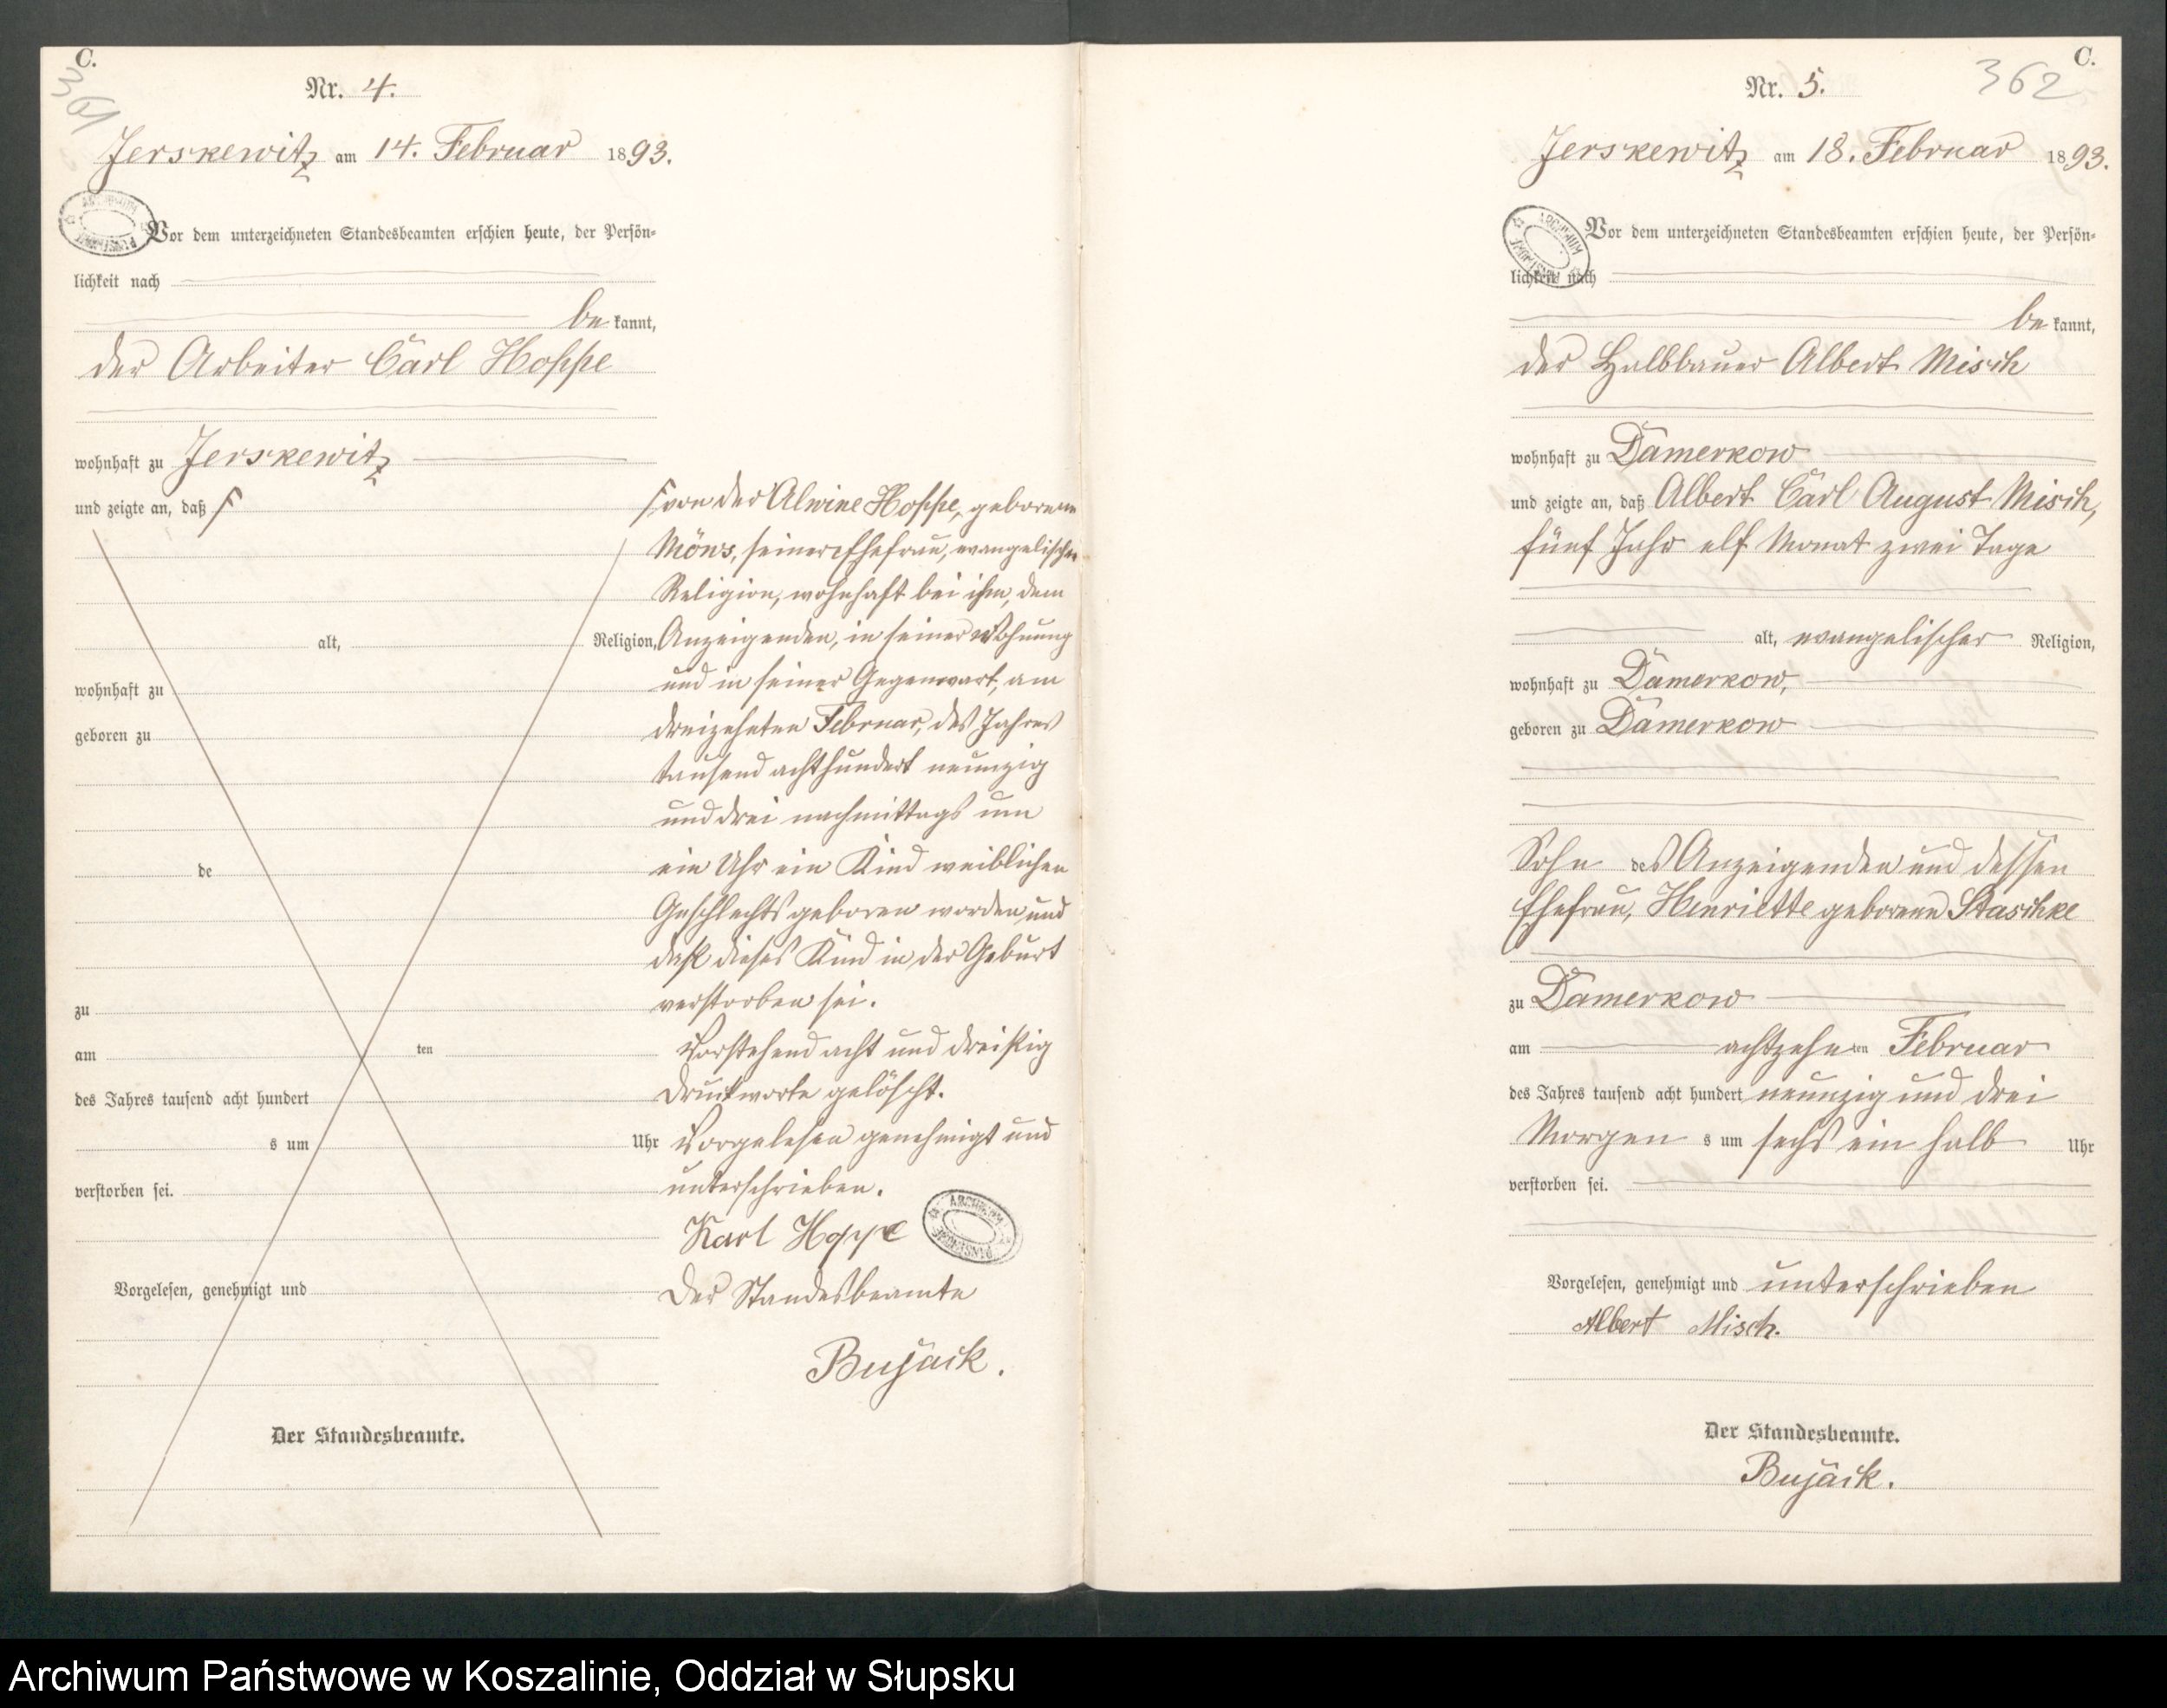 C.
361
Nr. 4.
Jerskewitz am 14. Februar 1893.
Vor dem unterzeichneten Standesbeamten erschien heute, der Persön-
lichkeit nach
be kannt,
der Arbeiter Carl Hoppe
wohnhaft zu Jerskewitz
und zeigte an, daß
alt, Religion,
wohnhaft zu
geboren zu
de
zu
am ten
des Jahres tausend acht hundert
s um Uhr
verstorben sei.
Vorgelesen, genehmigt und
Der Standesbeamte.
von der Alwine Hoppe, geborenen
Möws, seiner Ehefrau, evangelischer
Religion, wohnhaft bei ihm, dem
Anzeigenden, in seiner Wohnung
und in seiner Gegenwart, am
dreizehnten Februar, des Jahres
tausend achthundert neunzig
und drei nachmittags um
ein Uhr ein Kind weiblichen
Geschlechts geboren worden, und
daß dieses Kind in der Geburt
verstorben sei.
Vorstehend acht und dreißig
Druckworte gelöscht.
Vorgelesen genehmigt und
unterschrieben.
Karl Hoppe
Der Standesbeamte
Bujack.
C.
362
Nr. 5.
Jerskewitz am 18. Februar 1893.
Vor dem unterzeichneten Standesbeamten erschien heute, der Persön-
lichkeit nach
be kannt,
der Halbbauer Albert Misch
wohnhaft zu Damerkow
und zeigte an, daß Albert Carl August Misch,
fünf Jahr elf Monat zwei Tage
alt, evangelischer Religion,
wohnhaft zu Damerkow,
geboren zu Damerkow
Sohn des Anzeigenden und dessen
Ehefrau, Henriette geborenen Staschke
zu Damerkow
am achtzehnten Februar
des Jahres tausend acht hundert neunzig und drei
Morgen s um sechs ein halb Uhr
verstorben sei.
Vorgelesen, genehmigt und unterschrieben
Albert Misch.
Der Standesbeamte.
Bujack.
Archiwum Państwowe w Koszalinie, Oddział w Słupsku